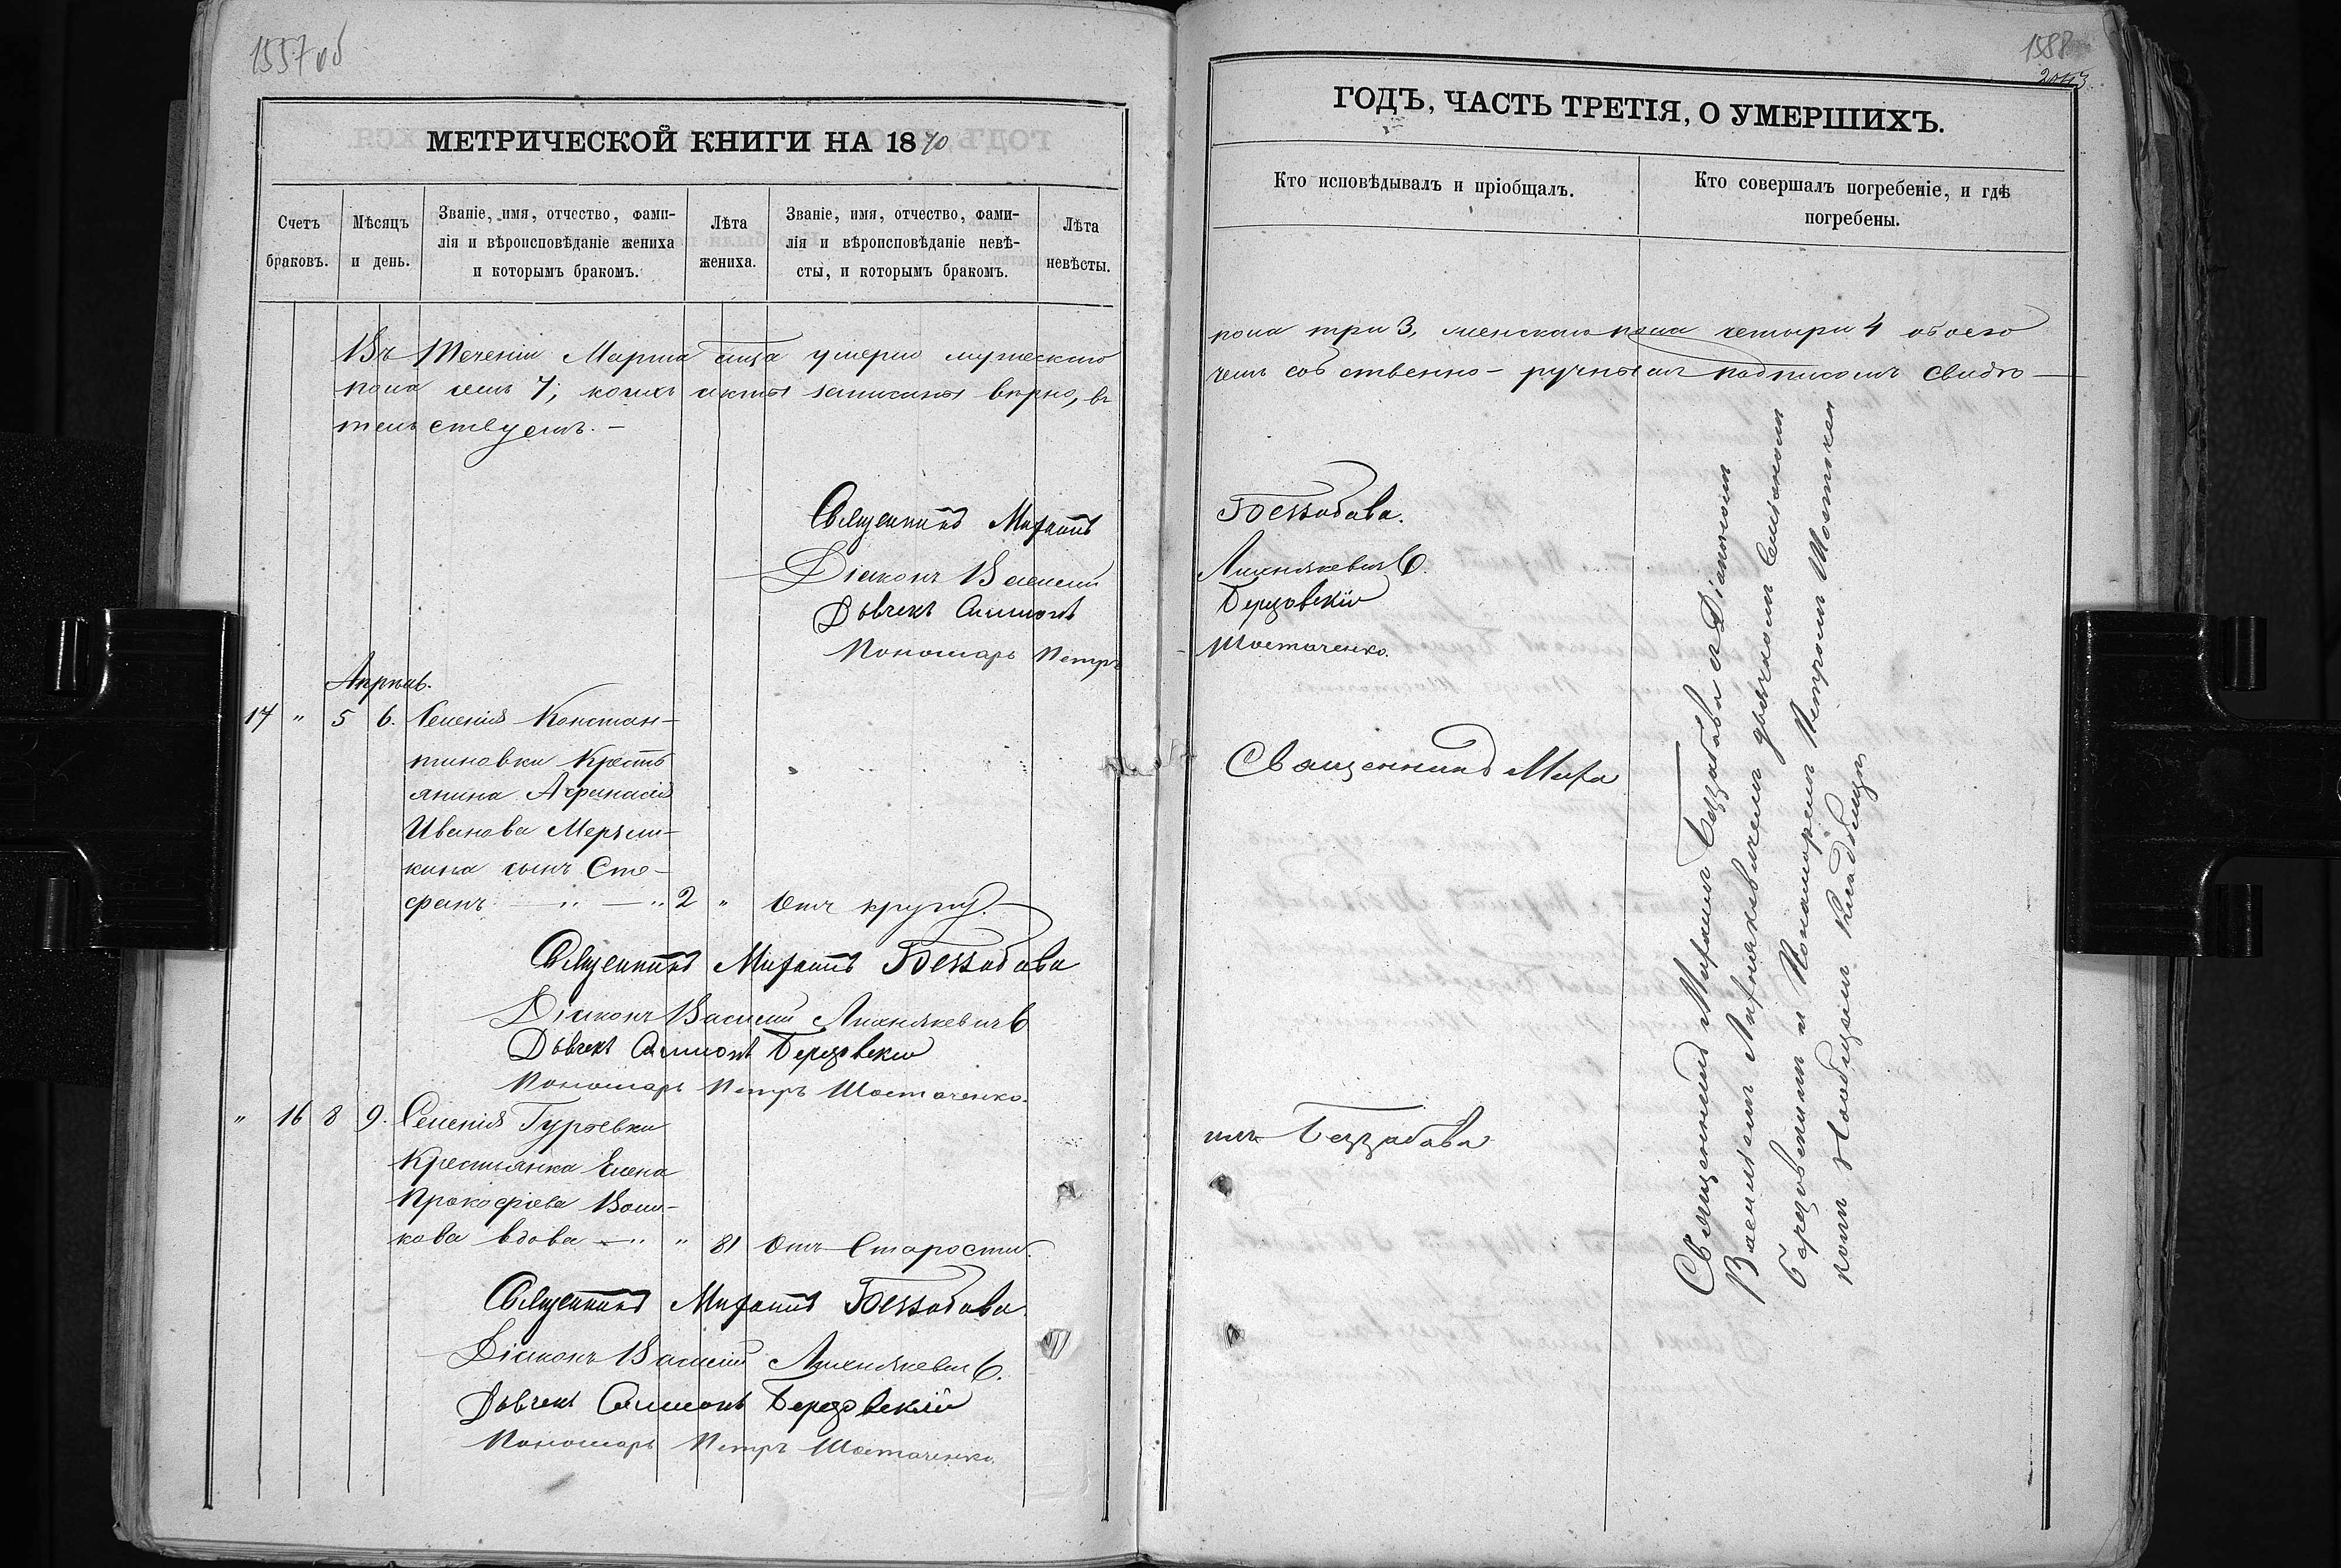 1557 об
МЕТРИЧЕСКОЙ КНИГИ НА 1870
Счетъ браковъ.
Мѣсяцъ и день.
Званіе, имя, отчество, фами-
лія и вѣроисповѣданіе жениха
и которымъ бракомъ.
Лѣта жениха.
Званіе, имя, отчество, фами-
лія и вѣроисповѣданіе невѣ-
сты, и которымъ бракомъ.
Лѣта невѣсты.
Въ теченіи Марта м-ца умерло мужескаго
пола семь 7, коихъ акты записаны вѣрно, въ
тельствуемъ. –
Священникъ Михаилъ
Діаконъ Василій
Дьячекъ Симионъ
Пономарь Петръ
Апрѣль.
17 " 5 6. Селенія Констан-
тиновки Кресть
янина Афанасія
Иванова
кина сынъ Сте-
фанъ — " — " 2 " Отъ
Священникъ Михаилъ Беззабава
Діаконъ Василій Лихнякевичъ
Дьячекъ Симионъ Березовскій
Пономарь Петръ Шостаченко.
" 16 8 9. Селенія Гурьевки
Крестьянка Елена
Прокофіева Воли-
кова вдова — " " 81 Отъ Старости.
Священникъ Михаилъ Беззабава
Діаконъ Василій Лихнякевичъ.
Дьячекъ Симионъ Березовскій
Пономарь Петръ Шостаченко.
1588
ГОДЪ, ЧАСТЬ ТРЕТІЯ, О УМЕРШИХЪ.
Кто исповѣдывалъ и пріобщалъ.
Кто совершалъ погребеніе, и гдѣ
погребены.
пола три 3, женскаго пола четыри 4 обоего
чемъ собственно-ручнымъ подписомъ свидѣ—
Беззабава.
Лихнякевичъ.
Березовскій
Шостаченко.
Священникъ Миха
илъ Беззабава
Священникъ Михаилъ Беззабава съ Діакономъ
Василіемъ Лихнякевичемъ дьячкомъ Симіономъ
Березовскимъ и Пономаремъ Петромъ Шостачен
комъ на общемъ кладбищѣ